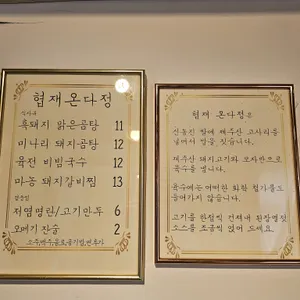 협재온다정
식사류
흑돼지 맑은곰탕 11
미나리 돼지곰탕 12
육전 비빔국수 12
마농 돼지갈비찜 13
저염명란/고기만두 6
오메기 잔술 2
협재 온다정은
신동진 쌀에 제주산 고사리를
넣어서 밥을 짓습니다.
제주산 돼지고기와 뼈만으로
육수를 만듭니다.
육수에는 어떠한 화학 첨가물도
들어가지 않습니다.
고기를 한점씩 건져내
소스를 조금씩 얹어 드세요.